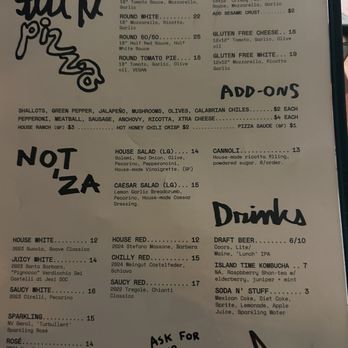 pizza
18" Tomato Sauce, Mozzarella,
Garlic
ROUND WHITE........ 22
18" Mozzarella, Ricotta
Garlic
ROUND 50/50........ 25
18" Half Red Sauce, Half
White Sauce
ROUND TOMATO PIE.... 16
18" Tomato, Garlic, Olive
oil. VEGAN
Sauce, Mozzarella, Garlic
ADD SESAME CRUST..... $2
GLUTEN FREE CHEESE.. 18
12x12" Tomato, Garlic, Olive
oil
GLUTEN FREE WHITE... 19
12x12" Mozzarella, Ricotta,
Garlic
ADD-ONS
SHALLOTS, GREEN PEPPER, JALAPEÑO, MUSHROOMS, OLIVES, CALABRIAN CHILES......$2 EACH
PEPPERONI, MEATBALL, SAUSAGE, ANCHOVY, RICOTTA, XTRA CHEESE.......$4 EACH
HOUSE RANCH (GF) $3 HOT HONEY CHILI CRISP $2 PIZZA SAUCE (GF) $1
NOT
'ZA
HOUSE SALAD (LG).... 14
Salami, Red Onion, Olive,
Pecorino, Pepperoncini,
House-made Vinaigrette. (GF)
CAESAR SALAD (LG).... 15
Lemon Garlic Breadcrumb,
Pecorino, House-made Caesar
Dressing
CANNOLI............. 13
House-made ricotta filling,
powdered sugar. 6/order.
Drinks
HOUSE WHITE........ 12
2023 Suavia, Soave Classico
JUICY WHITE........ 14
2023 Santa Barbara,
"Pignocco" Verdicchio Dei
Castelli di Jesi DOC
SAUCY WHITE........ 16
2023 Cirelli, Pecorino
SPARKLING.......... 15
NV Gerol, 'Turulbent'
Sparkling Rosé
ROSÉ............... 14
HOUSE RED.......... 12
2024 Stefano Massone, Barbera
CHILLY RED......... 15
2024 Weingut Castelfeder,
Schiava
SAUCY RED.......... 17
2022 Tregole, Chianti
Classico
DRAFT BEER....... 6/10
Coors, Lite/
Maine, 'Lunch' IPA
ISLAND TIME KOMBUCHA .. 7
NA. Raspberry Shan-tea w/
elderberry, juniper + mint
SODA N' STUFF....... 3
Mexican Coke, Diet Coke,
Sprite, Lemonade, Apple
Juice, Sparkling Water
ASK FOR